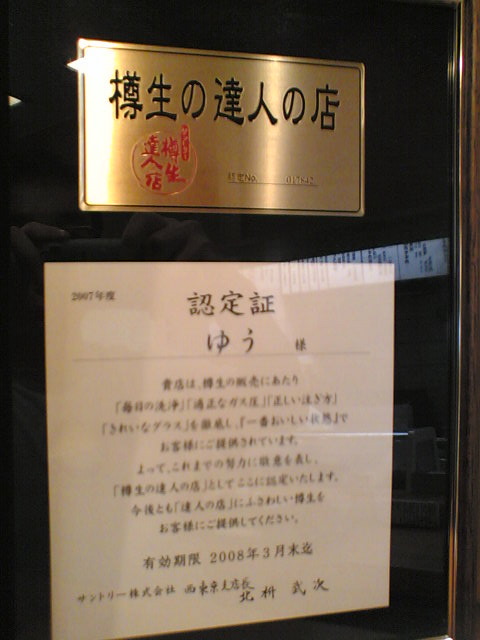 樽生の達人の店
樽生
達人店
認定No. 017842
2007年度
認定証
ゆう 様
貴店は、樽生の販売にあたり
「毎日の洗浄」「適正なガス圧」「正しい注ぎ方」
「きれいなグラス」を徹底し、『一番おいしい状態』で
お客様にご提供されています。
よって、これまでの努力に敬意を表し、
「樽生の達人の店」としてここに認定いたします。
今後とも「達人の店」にふさわしい樽生を
お客様にご提供してください。
有効期限 2008年3月末迄
サントリー株式会社 西東京支店長
北村 武次